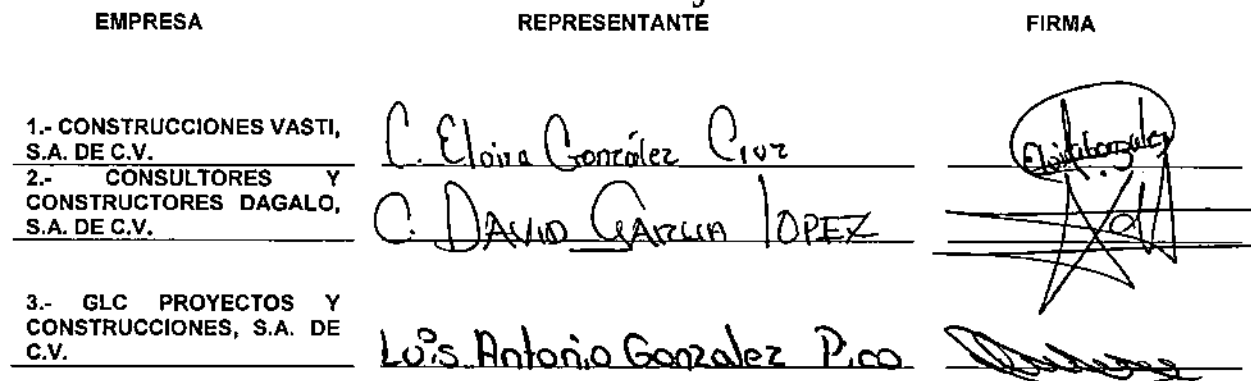 EMPRESA REPRESENTANTE FIRMA
1.- CONSTRUCCIONES VASTI,
S.A. DE C.V.
C. Eloira González Cruz
2.- CONSULTORES Y
CONSTRUCTORES DAGALO,
S.A. DE C.V.
C. DAVID GARCIA LOPEZ
3.- GLC PROYECTOS Y
CONSTRUCCIONES, S.A. DE
C.V.
Luis Antonio Gonzalez Pico